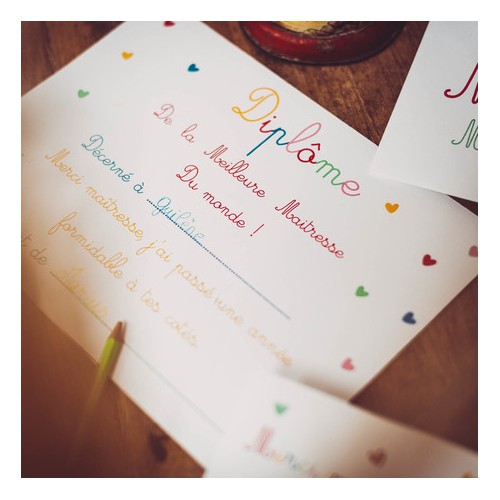 Diplôme
De la Meilleure Maitresse
Du monde !
Décerné à
Merci maîtresse, j'ai passé une année
formidable à tes cotés
de